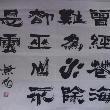 曾經滄海
難為水除
卻巫山不
是雲